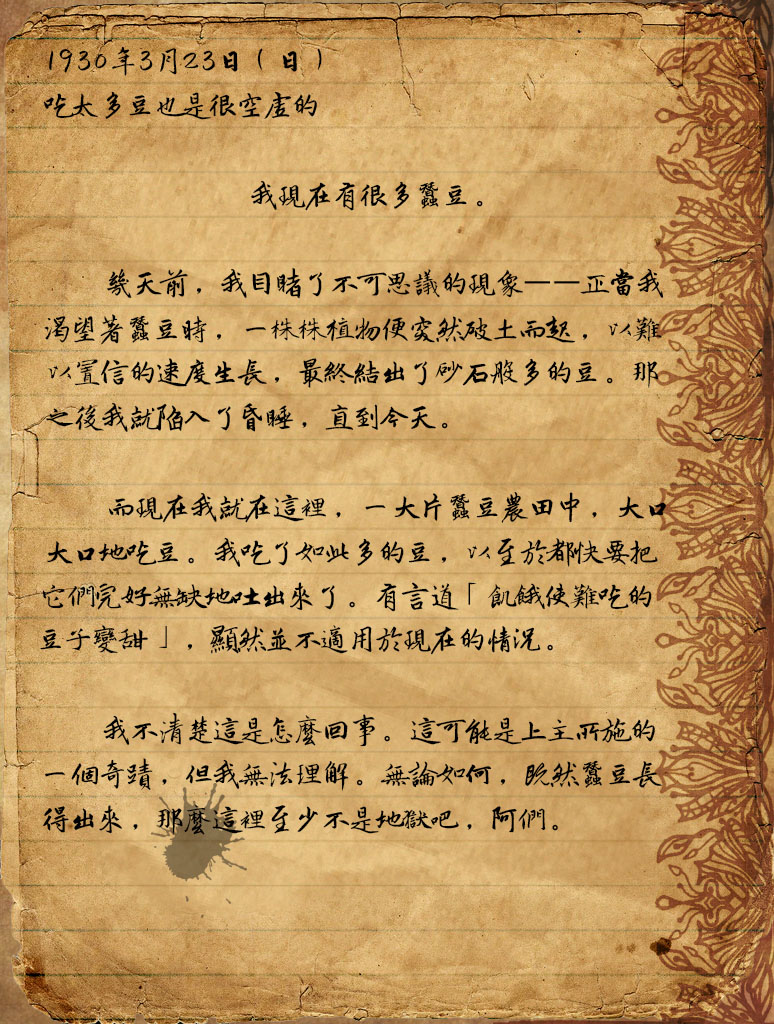 1930年3月23日（日）
吃太多豆也是很空虛的
我現在有很多蠶豆。
幾天前，我目睹了不可思議的現象——正當我
渴望著蠶豆時，一株株植物便突然破土而起，以難
以置信的速度生長，最終結出了砂石般多的豆。那
之後我就陷入了昏睡，直到今天。
而現在我就在這裡，一大片蠶豆農田中，大口
大口地吃豆。我吃了如此多的豆，以至於都快要把
它們完好無缺地吐出來了。有言道「飢餓使難吃的
豆子變甜」，顯然並不適用於現在的情況。
我不清楚這是怎麼回事。這可能是上主所施的
一個奇蹟，但我無法理解。無論如何，既然蠶豆長
得出來，那麼這裡至少不是地獄吧，阿們。